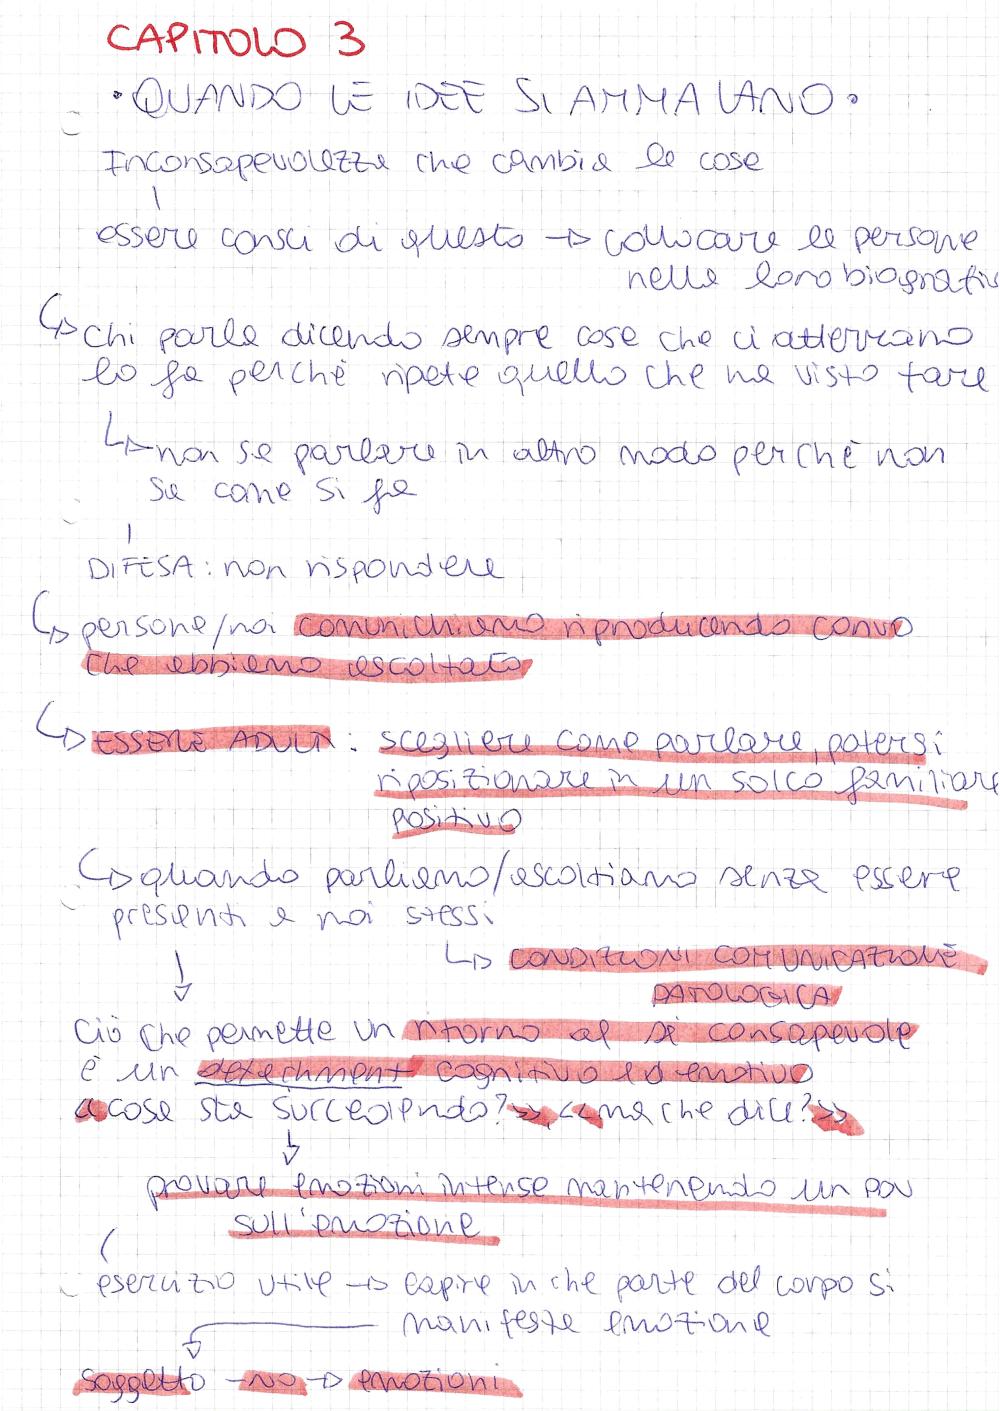 CAPITOLO 3
• QUANDO LE IDEE SI AMMALANO •
Inconsapevolezza che cambia le cose
essere consci di questo → collocare le persone
nella loro biografia
↳ chi parla dicendo sempre cose che ci atterrano
lo fa perchè ripete quello che ha visto fare
↳ non sa parlare in altro modo perchè non
sa come si fa
DIFESA: non rispondere
↳ persone/noi comunichiamo riproducendo convo
che abbiamo ascoltato
↳ ESSERE ADULTI: scegliere come parlare, potersi
riposizionare in un solco familiare
positivo
↳ quando parliamo/ascoltiamo senza essere
presenti a noi stessi
↳ CONDIZIONI COMUNICAZIONE
PATOLOGICA
ciò che permette un ritorno al sé consapevole
è un detachment cognitivo ed emotivo
«cosa sta succedendo?» «ma che dice?»
provare emozioni intense mantenendo un POV
sull'emozione
esercizio utile → capire in che parte del corpo si
manifesta emozione
soggetto - NO → emozioni